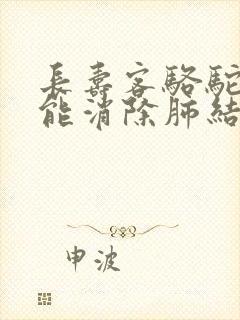 長壽客駱駝
能消除肺結
申波